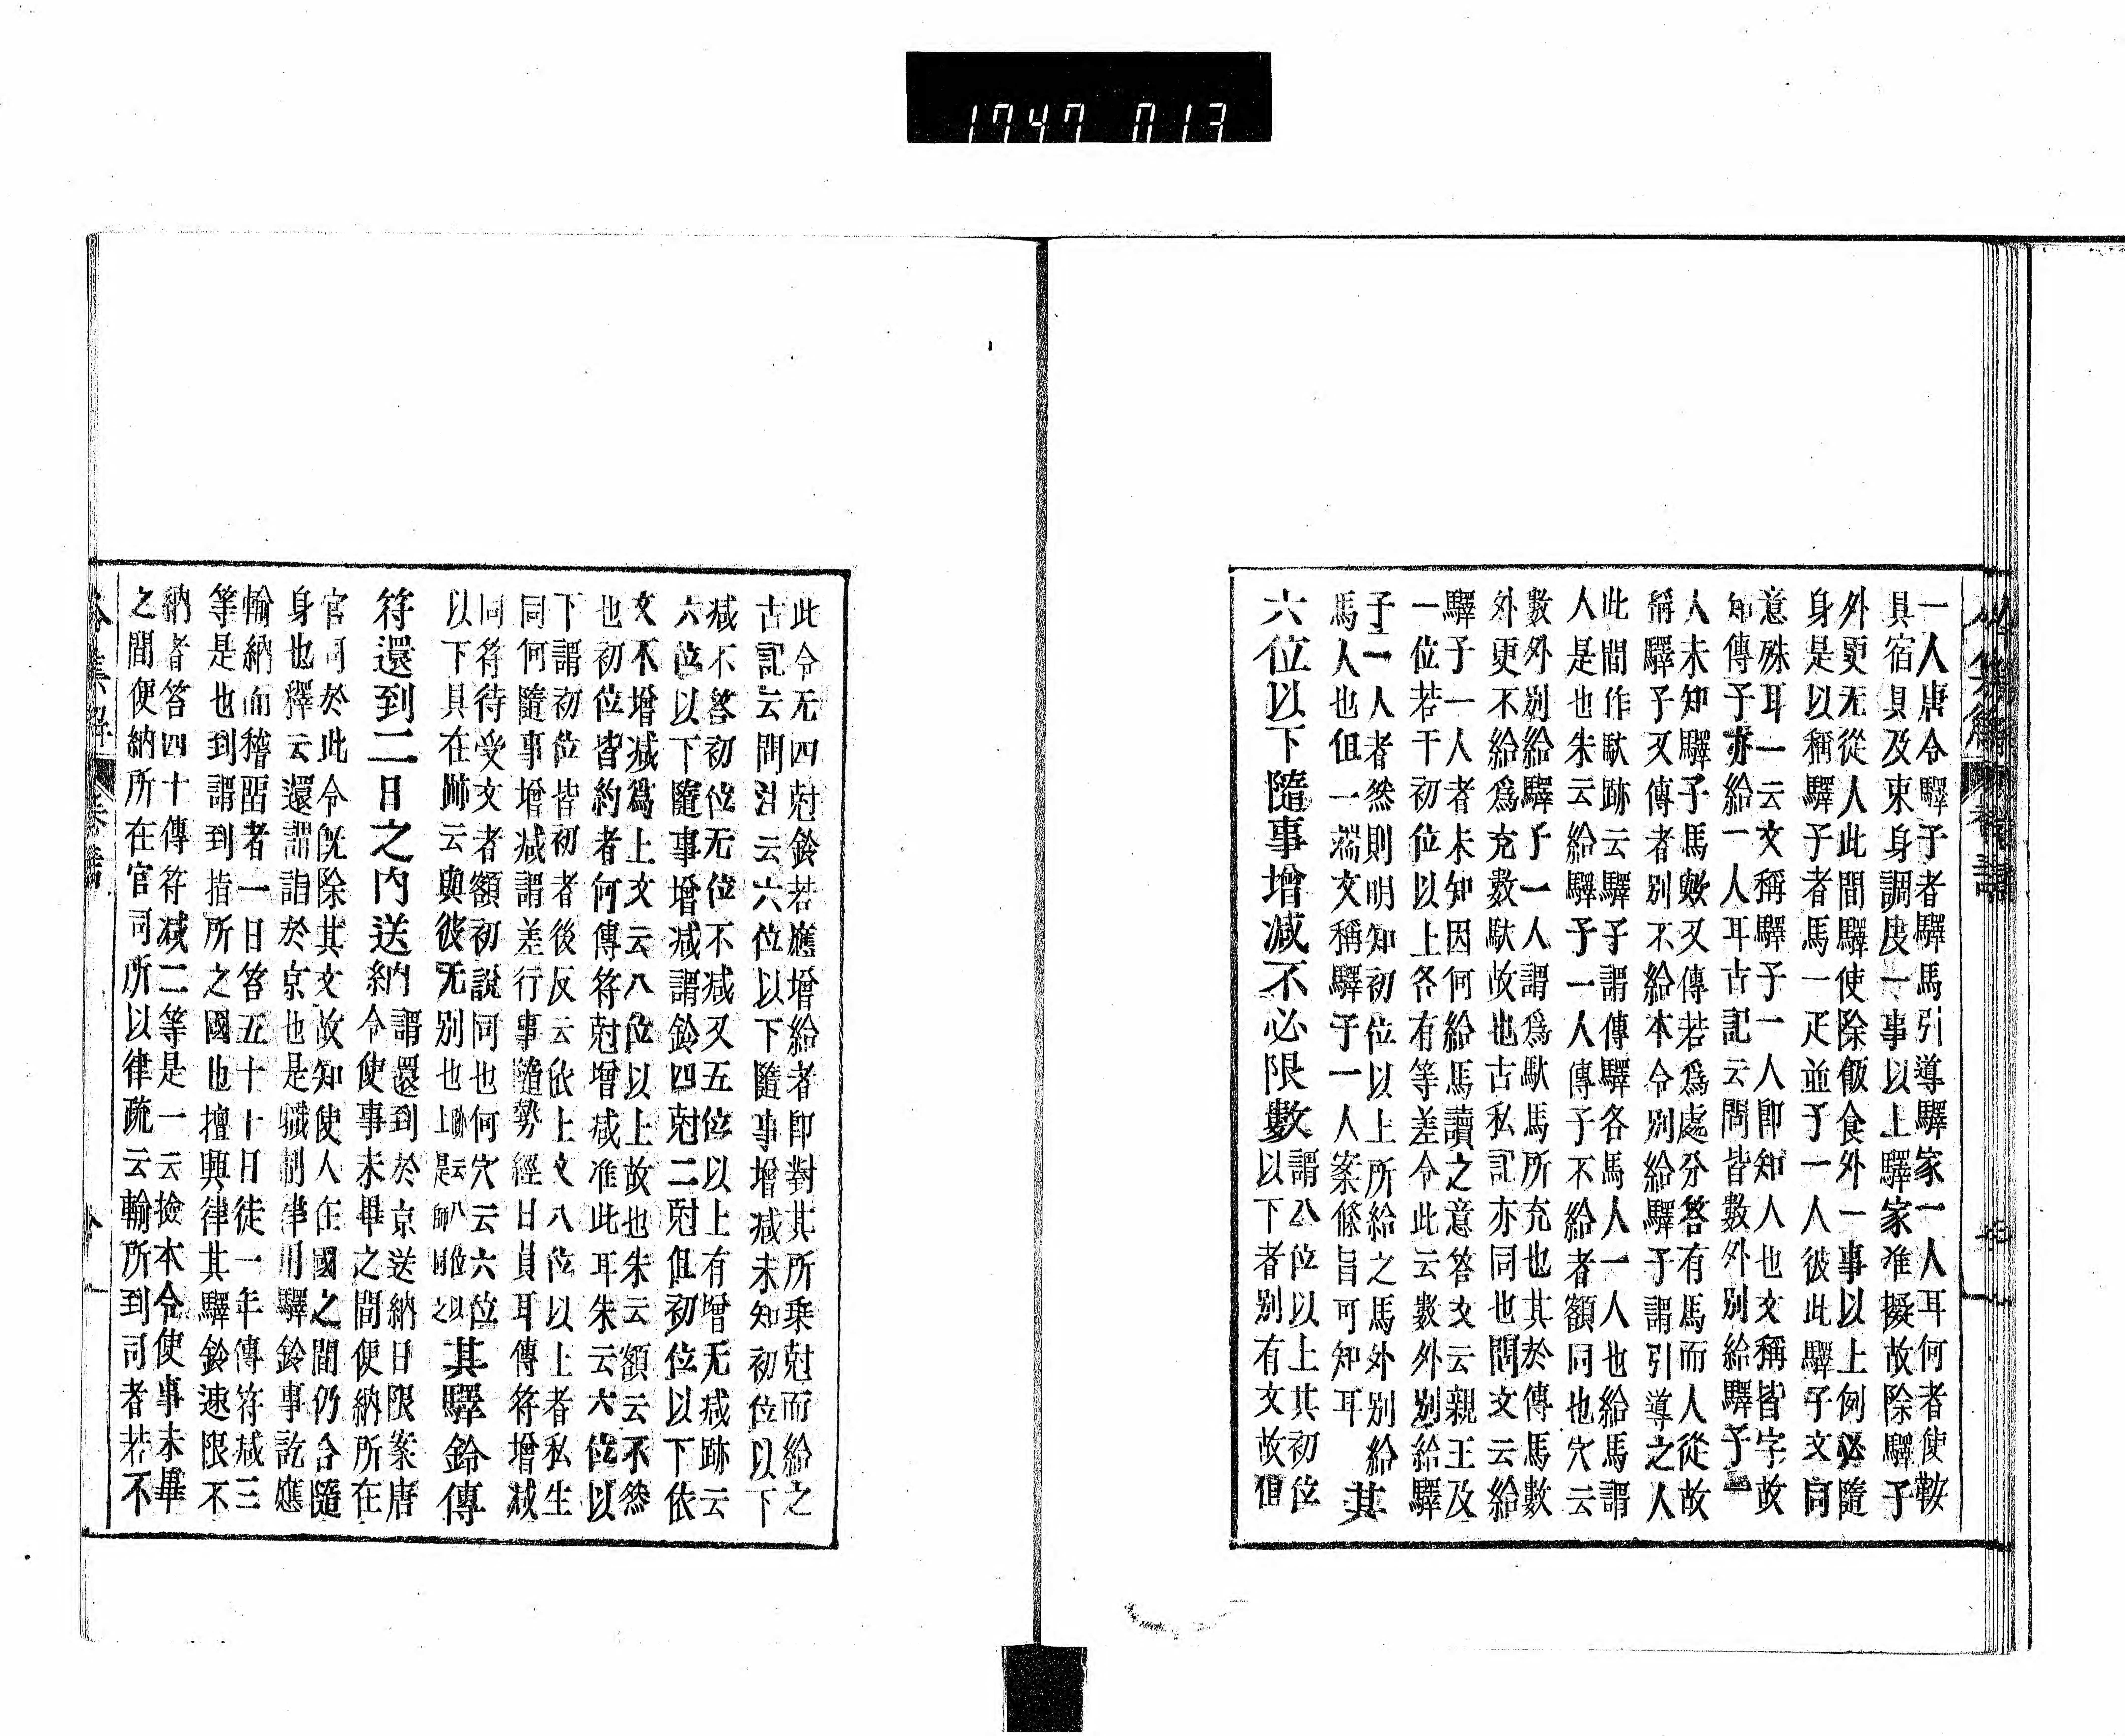 1747 013
一人唐令驛子者驛馬引導驛家一人耳何者使鞍
具宿具及束身調度一事以上驛家准擬故除驛子
外更无從人此間驛使除飯食外一事以上例必隨
身是以稱驛子者馬一疋並子一人彼此驛子文同
意殊耳一云文稱驛子一人即知人也文稱皆字故
知傳子亦給一人耳古記云問皆數外別給驛子一
人未知驛子馬數又傳若爲處分答有馬而人從故
稱驛子又傳者別不給本令別給驛子謂引導之人
此間作馱跡云驛子謂傳驛各馬人一人也給馬謂
人是也朱云給驛子一人傳子不給者額同也穴云
數外別給驛子一人謂爲馱馬所充也其於傳馬數
外更不給爲充數馱故也古私記亦同也問文云給
驛子一人者未知因何給馬讀之意答文云親王及
一位若干初位以上各有等差令此云數外別給驛
子一人者然則明知初位以上所給之馬外別給
馬人也但一端文稱驛子一人案條旨可知耳
其
六位以下隨事增减不必限數
謂八位以上其初位
以下者別有文故但
此令无四尅鈴若應增給者即對其所乘尅而給之
古記云問注云六位以下隨事增减未知初位以下
减不答初位无位不减又五位以上有增无减跡云
六位以下隨事增减謂鈴四尅二尅但初位以下依
文不增减爲上文云八位以上故也朱云額云不然
也初位皆約者何傳符尅增减准此耳朱云六位以
下謂初位皆初者後反云依上文八位以上者私生
同何隨事增减謂差行事隨勢經日員耳傳符增减
同符待受文者額初說同也何穴云六位
以下具在跡云與彼无別也
跡云八位以
上是師同之
其驛鈴傳
符還到二日之內送納
謂還到於京送納日限案唐
令使事未畢之間便納所在
官司於此令既除其文故知使人在國之間仍合隨
身也釋云還謂詣於京也是職制律用驛鈴事訖應
輸納而稽留者一日笞五十十日徒一年傳符减三
等是也到謂到指所之國也擅興律其驛鈴速限不
納者笞四十傳符减二等是一云撿本令使事未畢
之間便納所在官司所以律疏云輸所到司者若不